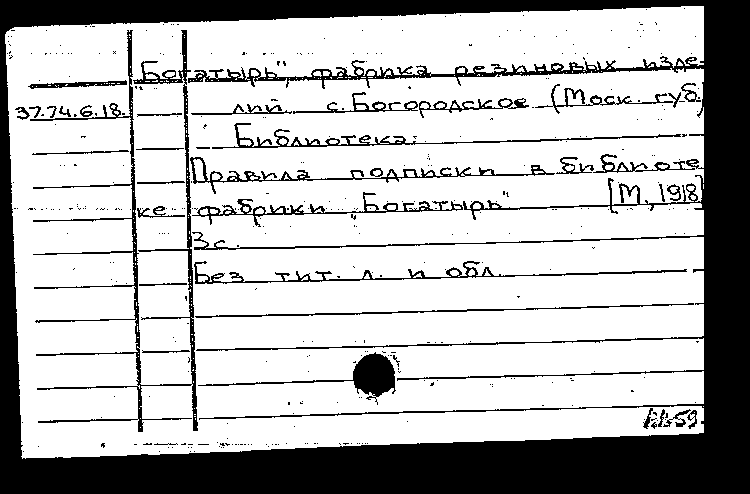 "Богатырь", фабрика резиновых изде-
37.74.6.18. лий. с. Богородское (Моск. губ.)
Библиотека.
Правила подписки в библиоте
ке фабрики "Богатырь" [М., 1918]
3 с.
Без тит. л. и обл.